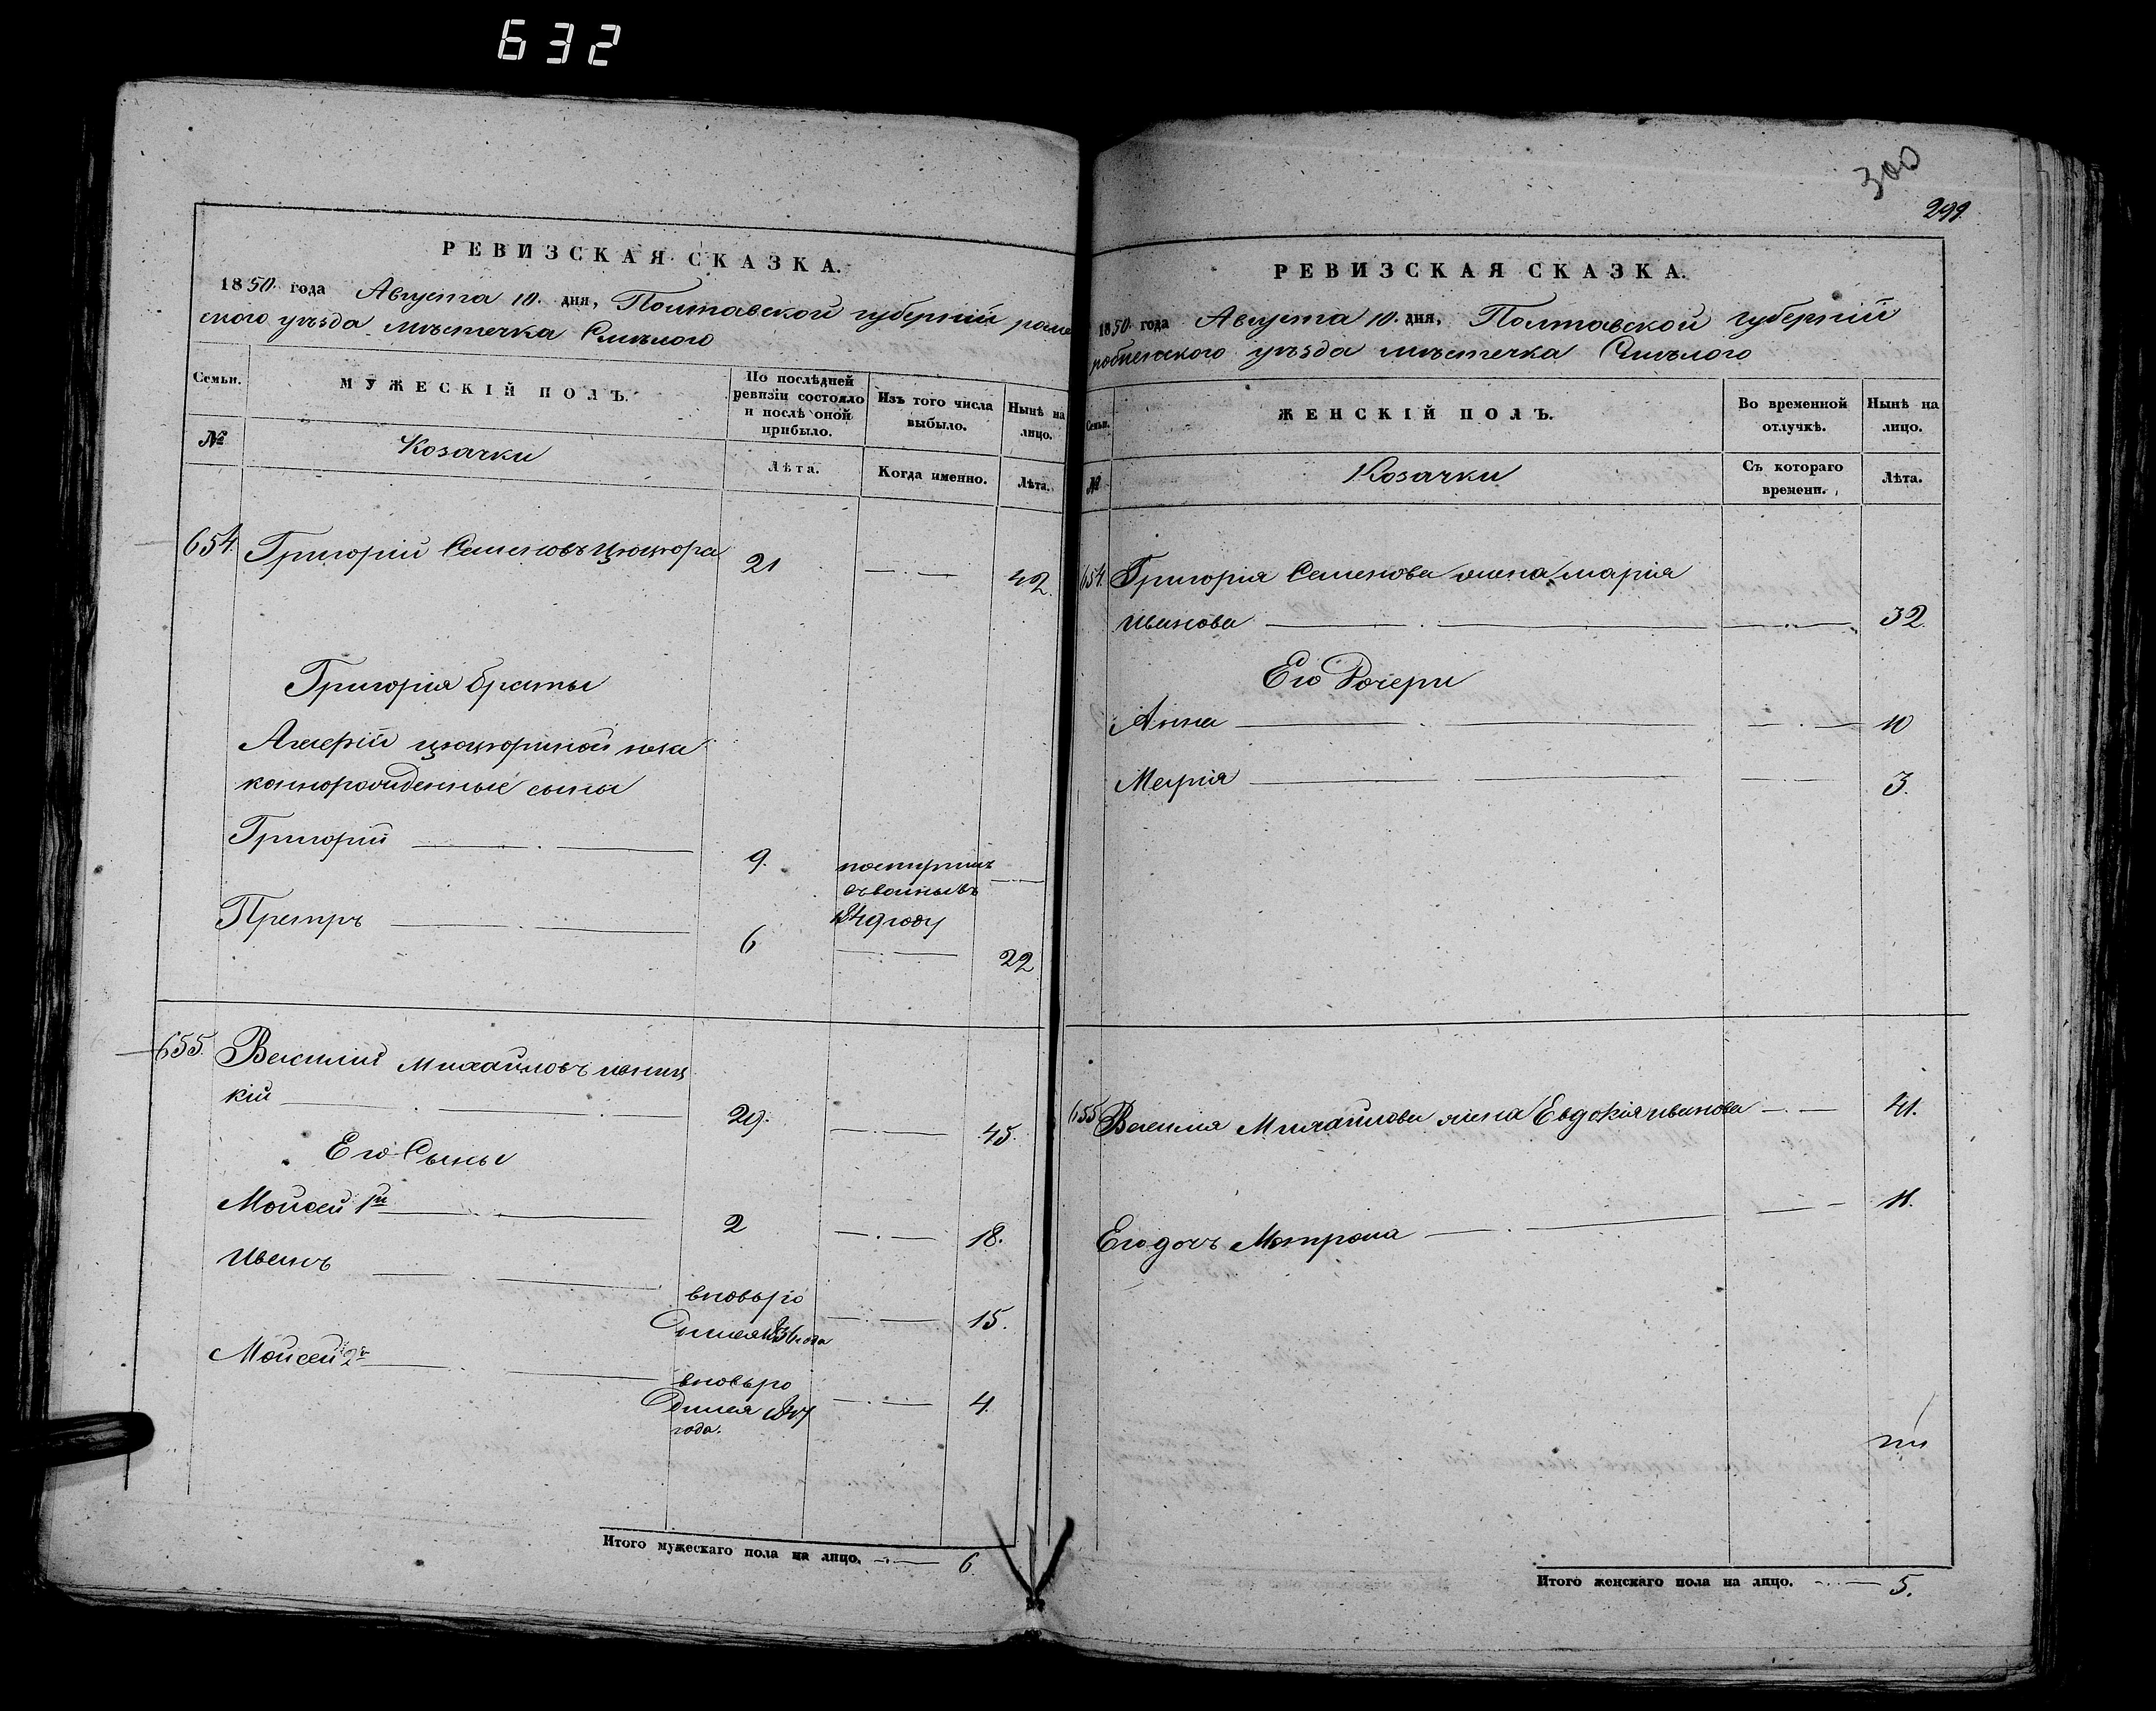 632
РЕВИЗСКАЯ СКАЗКА.
1850 года Августа 10. дня, Полтавской губерніи роме
ского уѣзда мѣстечка Смѣлого
Семьи.
МУЖЕСКІЙ ПОЛЪ.
По послѣдней ревизіи состояло и послѣ оной прибыло.
Изъ того числа выбыло.
Нынѣ на лицо.
№
Козачки
Лѣта.
Когда именно.
Лѣта.
654. Григорій Семеновъ Цюцюра 21 42
Григорія браты
Цюцюриной неза
коннорожденные сыны
Григорій 9.
1849 году
Петръ 6 22
655. Василий Михайловъ
кій 29. 45.
Его Сыны
Мойсей 1й 2 18.
Иванъ вновь ро
дился 1836 года 15.
Мойсей 2й вновь ро
дился 1847
года. 4.
Итого мужескаго пола на лицо. 6.
300
299
РЕВИЗСКАЯ СКАЗКА.
1850 года Августа 10. дня, Полтавской губерній
уѣзда мѣстечка Смѣлого
Семьи.
ЖЕНСКІЙ ПОЛЪ.
Во временной отлучкѣ.
Нынѣ на лицо.
№
Козачки
Съ котораго времени.
Лѣта.
654. Григорія Семенова жена Марія
Иванова 32.
Его Дочери
Анна 10
Марія 3.
655 Василия Михайлова жена Евдокія Иванова 41.
Его дочь Мотрона 11.
Итого женскаго пола на лицо. 5.